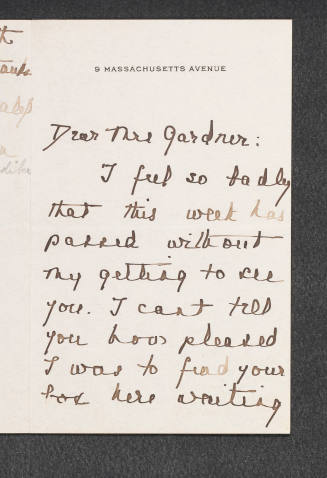 9 MASSACHUSETTS AVENUE
Dear Mrs Gardner:
I feel so badly
that this week has
passed without
my getting to see
you. I cant tell
you how pleased
I was to find your
box here waiting